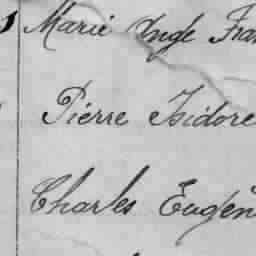 Marie Ange Fran
Pierre Isidore
Charles Eugèn